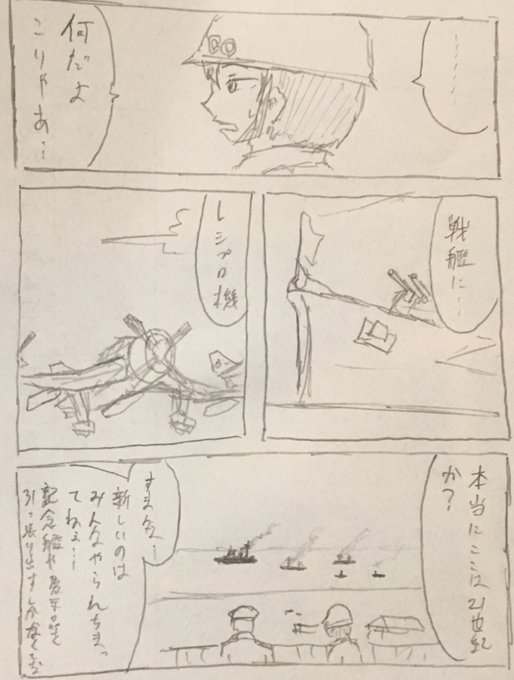 ……
何だよ
こりゃあ…
戦艦に…
レシプロ機
本当にここは21世紀
か?
新しいのは
みんなやられちまっ
てねぇ…
記念艦や展示品
引っ張り出すしかなくてな